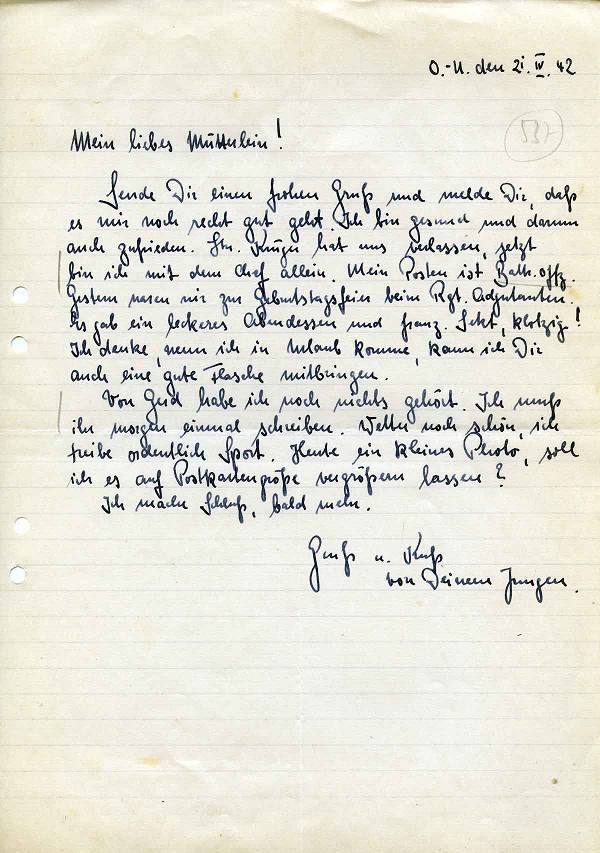 O.-U. den 21. IV. 42
537
Mein liebes Mütterlein!
Sende Dir einen frohen Gruß und melde Dir, daß
es mir noch recht gut geht. Ich bin gesund und darum
auch zufrieden. Ltn. Krüger hat uns verlassen, jetzt
bin ich mit dem Chef allein. Mein Posten ist Battr. offz.
Gestern waren wir zur Geburtstagsfeier beim Rgt. Adjutanten.
Es gab ein leckeres Abendessen und franz. Sekt, klotzig!
Ich denke, wenn ich in Urlaub komme, kann ich Dir
auch eine gute Flasche mitbringen.
Von habe ich noch nichts gehört. Ich muß
ihr morgen einmal schreiben. Wetter noch schön, ich
treibe ordentlich Sport. Heute ein kleines Photo, soll
ich es auf Postkartengröße vergrößern lassen?
Ich mache Schluß, bald mehr.
Gruß u. Kuß
von Deinem Jungen.